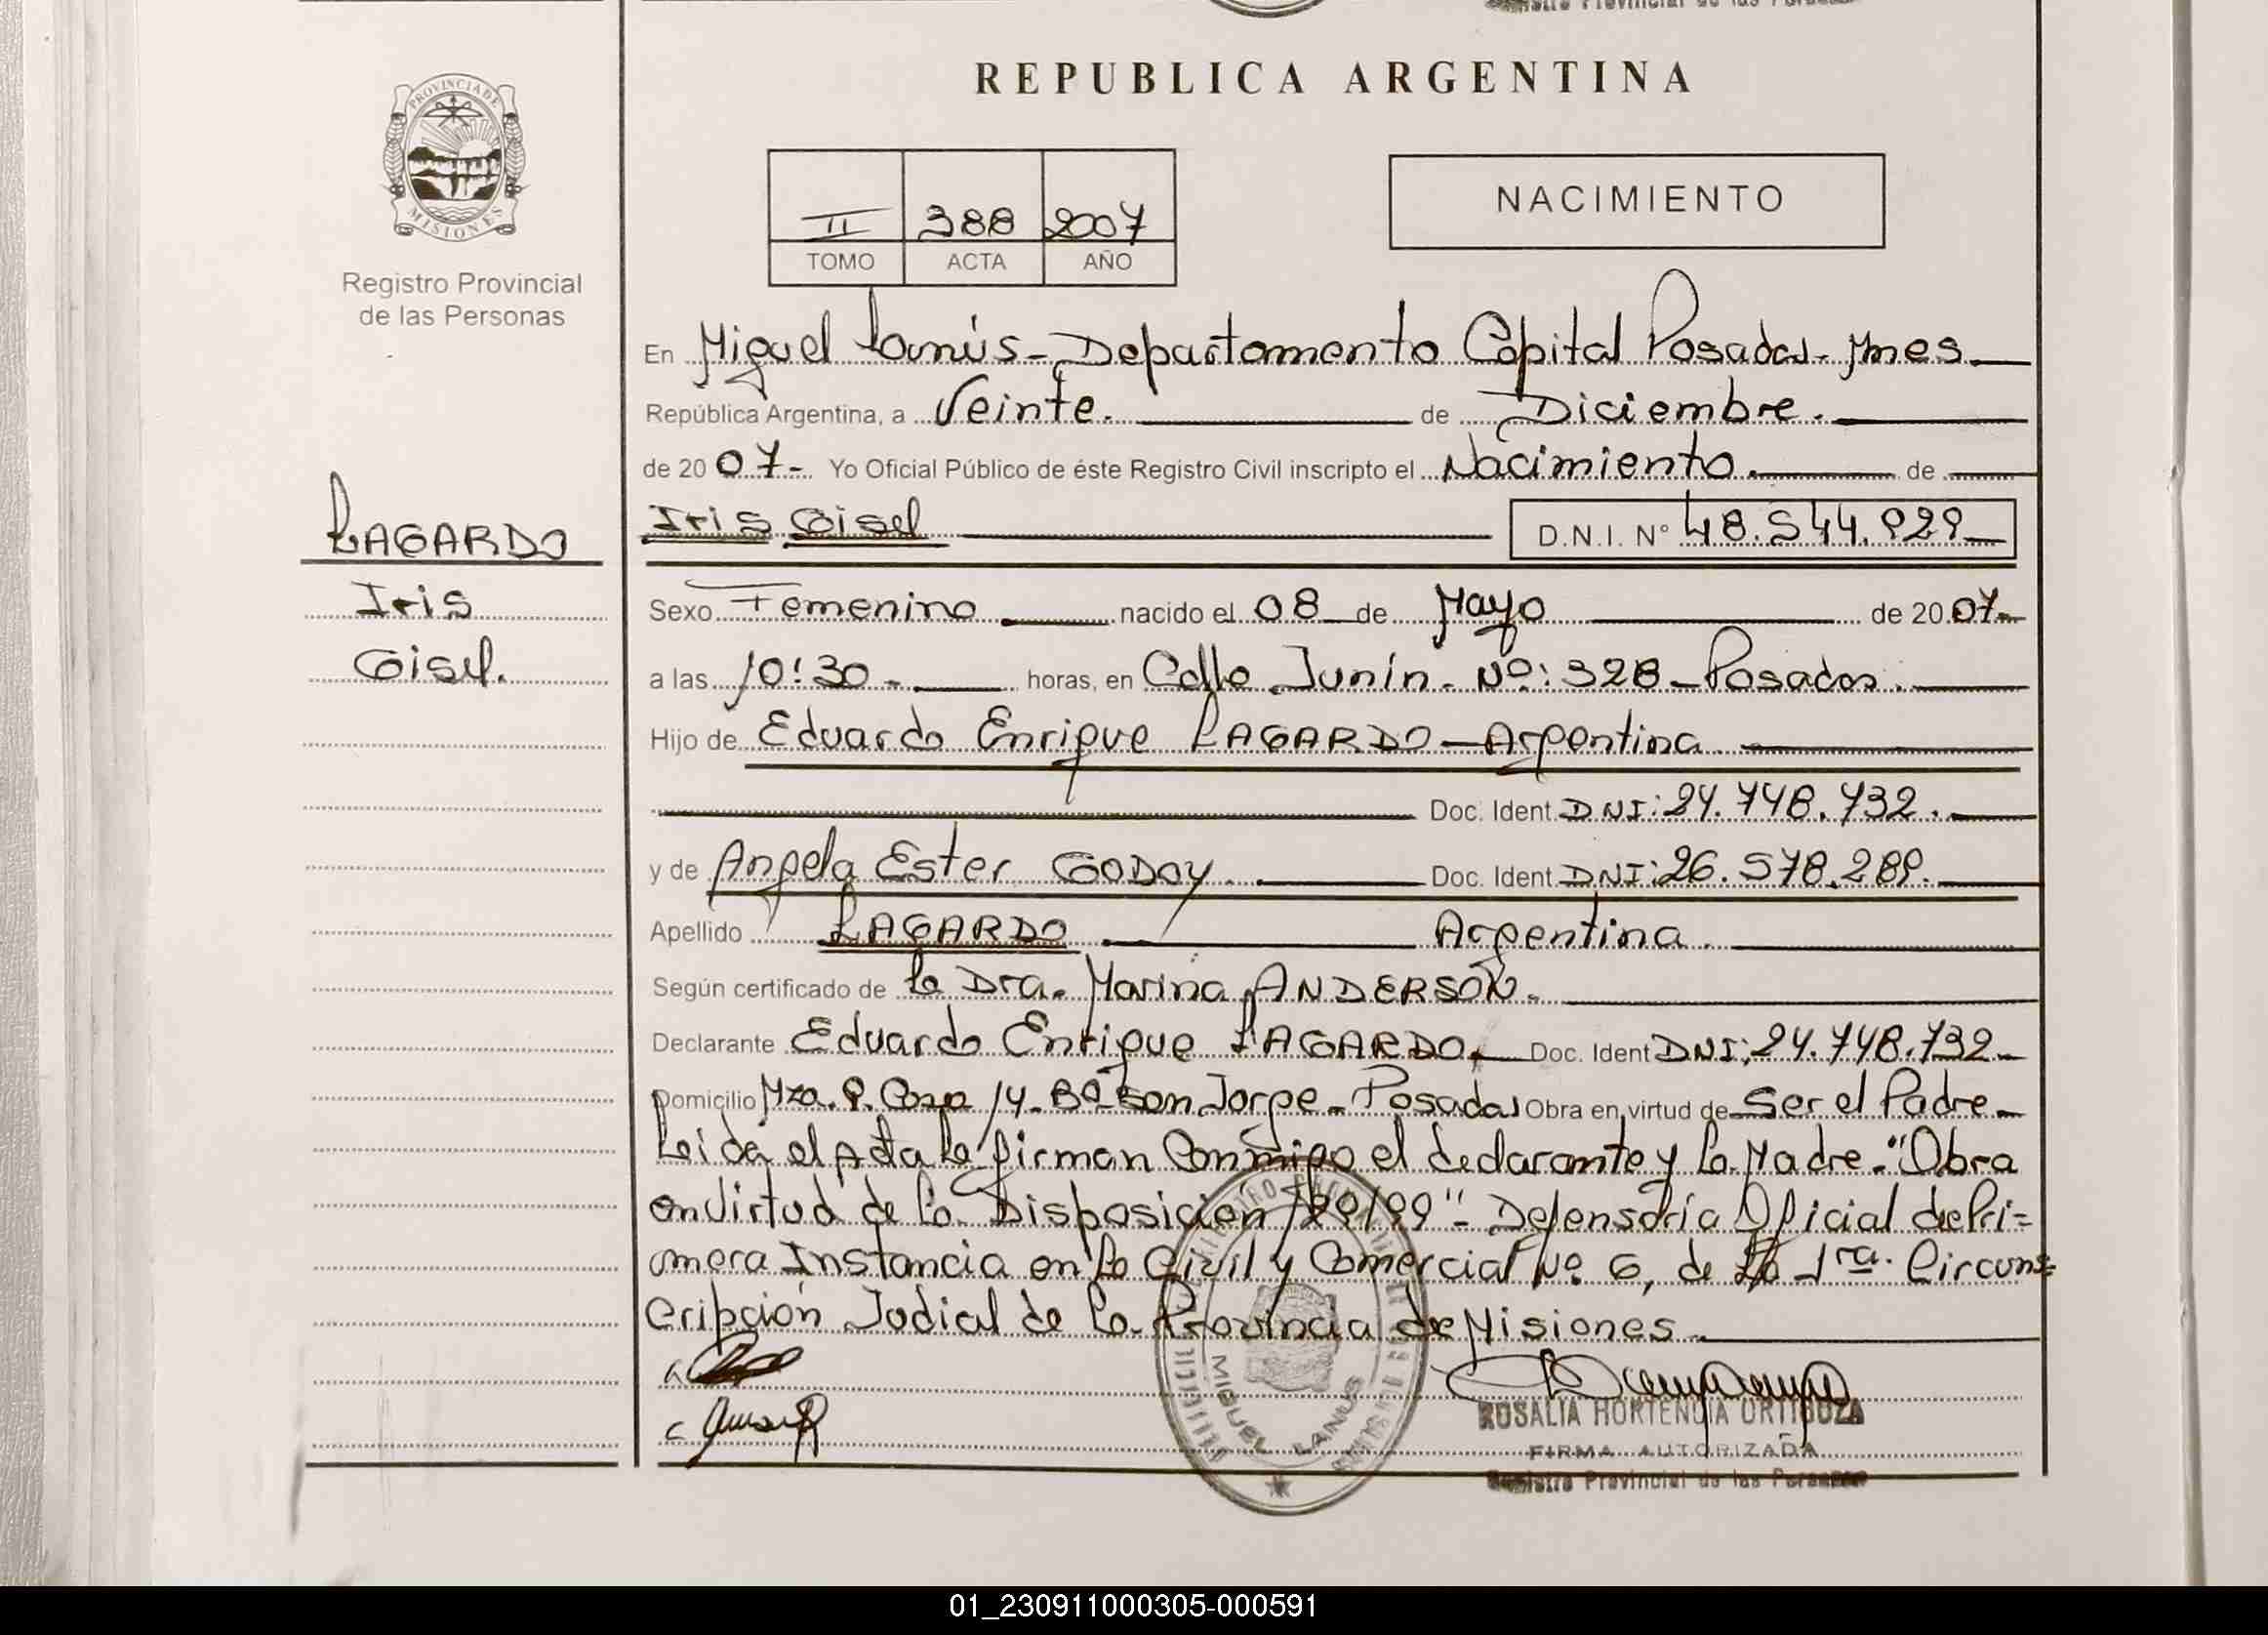 REPUBLICA ARGENTINA
PROVINCIA DE
MISIONES
Registro Provincial
de las Personas
II 388 2007
TOMO ACTA AÑO
NACIMIENTO
En Miguel Lanús - Departamento Capital Posadas - Mnes
República Argentina, a Veinte. de Diciembre.
de 2007 - Yo Oficial Público de éste Registro Civil inscripto el Nacimiento. de
Iris Gisel D.N.I. N° 48.544.929
LAGARDO
Iris
Gisel.
Sexo Femenino nacido el 08 de Mayo de 2007 -
a las 10:30 - horas, en Calle Junín - Nº: 328 - Posadas.
Hijo de Eduardo Enrique LAGARDO - Argentina
Doc. Ident. DNI: 24.748.732.
y de Angela Ester GODOY. Doc. Ident. DNI: 26.578.289.
Apellido LAGARDO Argentina.
Según certificado de la Dra. Marina ANDERSON.
Declarante Eduardo Enrique LAGARDO. Doc. Ident DNI: 24.748.732 -
Domicilio Mza. 9. Casa 14 - Bº San Jorge - Posadas Obra en virtud de Ser el Padre -
Leida el Acta la firman Conmigo el declarante y la Madre - "Obra
en Virtud de la Disposición /99" - Defensoría Oficial de Pri=
mera Instancia en lo Civil y Comercial Nº 6, de la 1ra. Circuns=
cripción Judicial de la Provincia de Misiones.
MIGUEL LANUS
ROSALIA HORTENCIA ORTIGOZA
FIRMA AUTORIZADA
Registro Provincial de las Personas
01_230911000305-000591